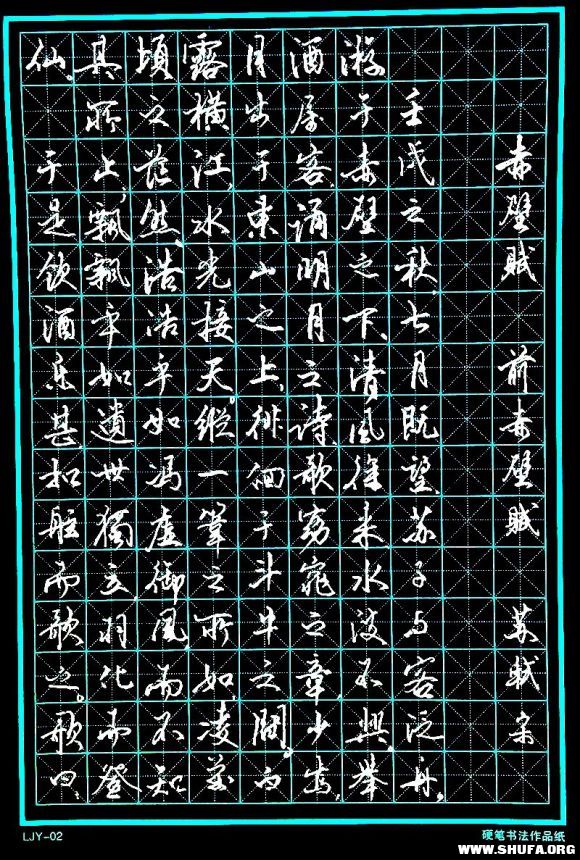 赤壁賦 前赤壁賦 苏軾宋
壬戌之秋,七月既望,苏子与客泛舟,
游于赤壁之下、清風徐来水波不興、舉
酒属客,诵明月之诗,歌窈窕之章,少焉,
月出于東山之上,徘徊于斗牛之間。白
露横江,水光接天。縱一葦之所如,凌萬
頃之茫然、浩浩乎如馮虚御風,而不知
其所止,飄飄乎如遺世獨立,羽化而登
仙、于是飲酒樂甚、扣舷而歌之。歌曰、
LJY-02
硬笔书法作品纸
WWW.SHUFA.ORG